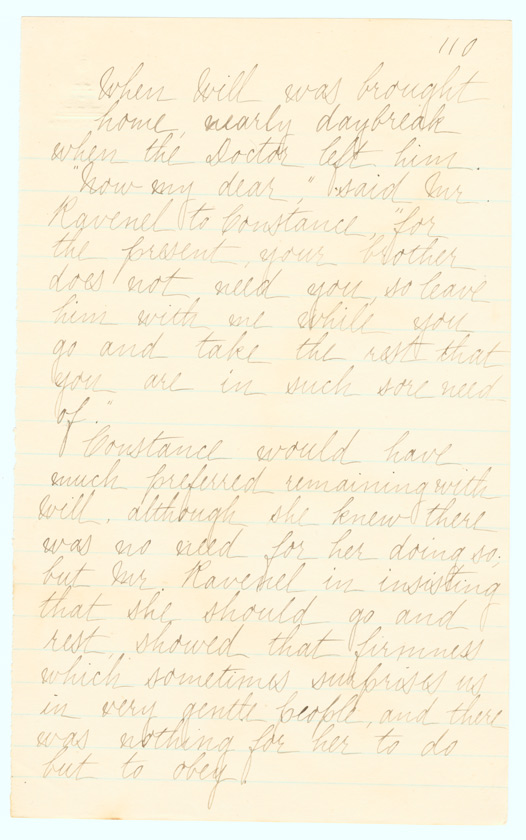 110
When Will was brought
home, nearly daybreak
when the Doctor left him.
"Now my dear," said Mr.
Ravenel to Constance, "for
the present, your brother
does not need you, so leave
him with me while you
go and take the rest that
you are in such sore need
of."
Constance would have
much preferred remaining with
Will, although she knew there
was no need for her doing so;
but Mr. Ravenel in insisting
that she should go and
rest, showed that firmness
which sometimes surprises us
in very gentle people, and there
was nothing for her to do
but to obey.